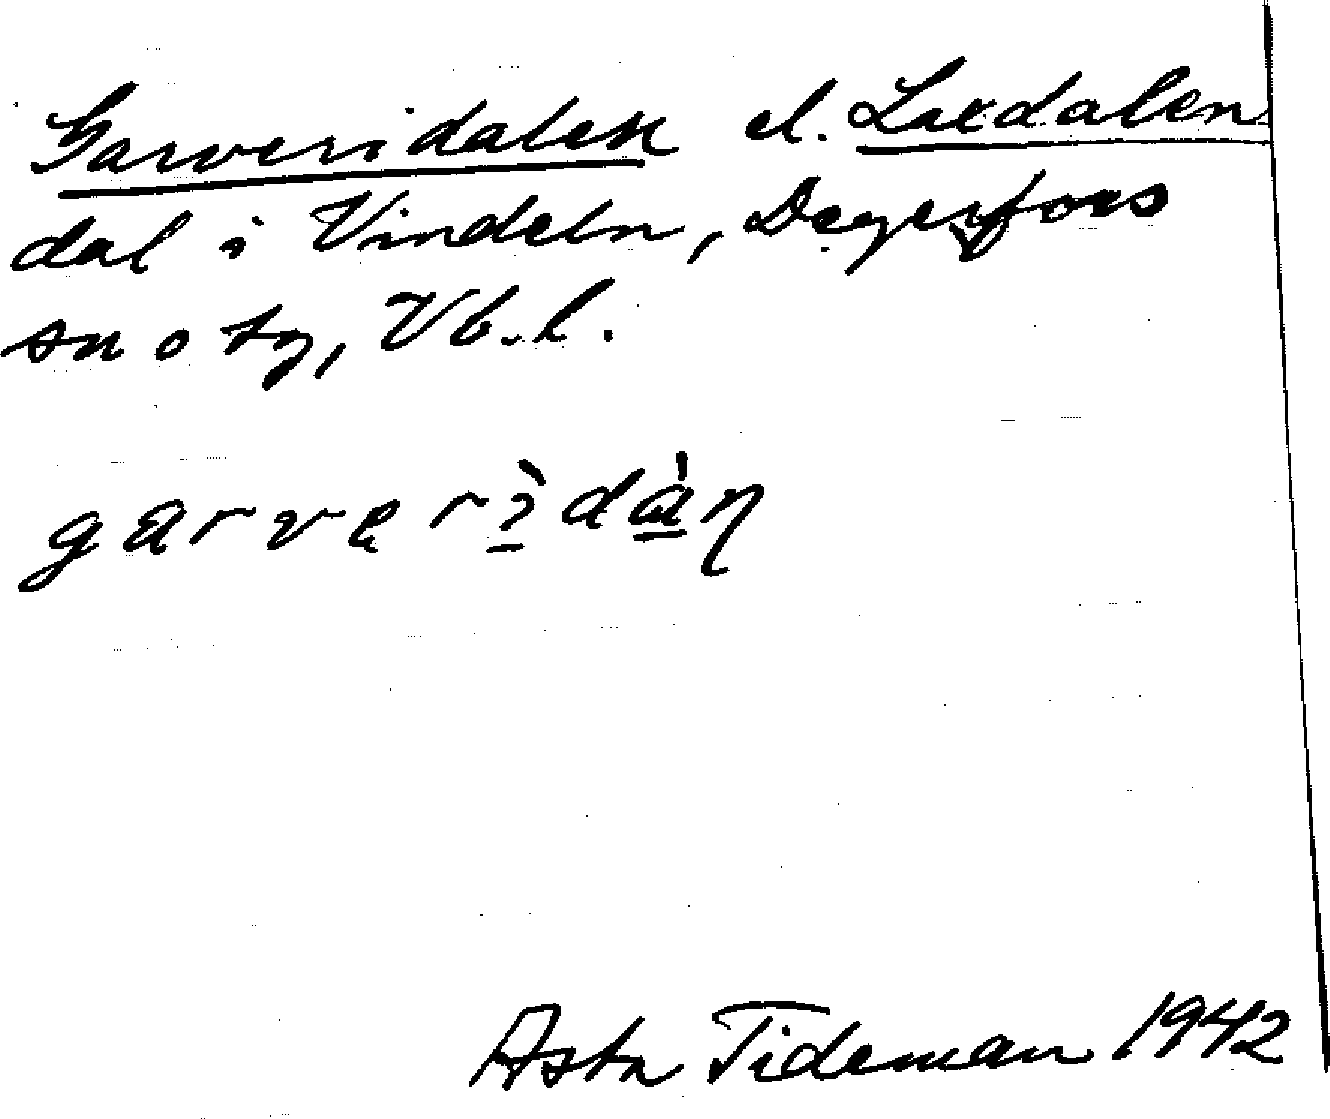 Garveridalen el. Laxdalen
dal i Vindeln, Degerfors
sn o tg, Vb. l.
garverìdàn
Asta Tideman 1942